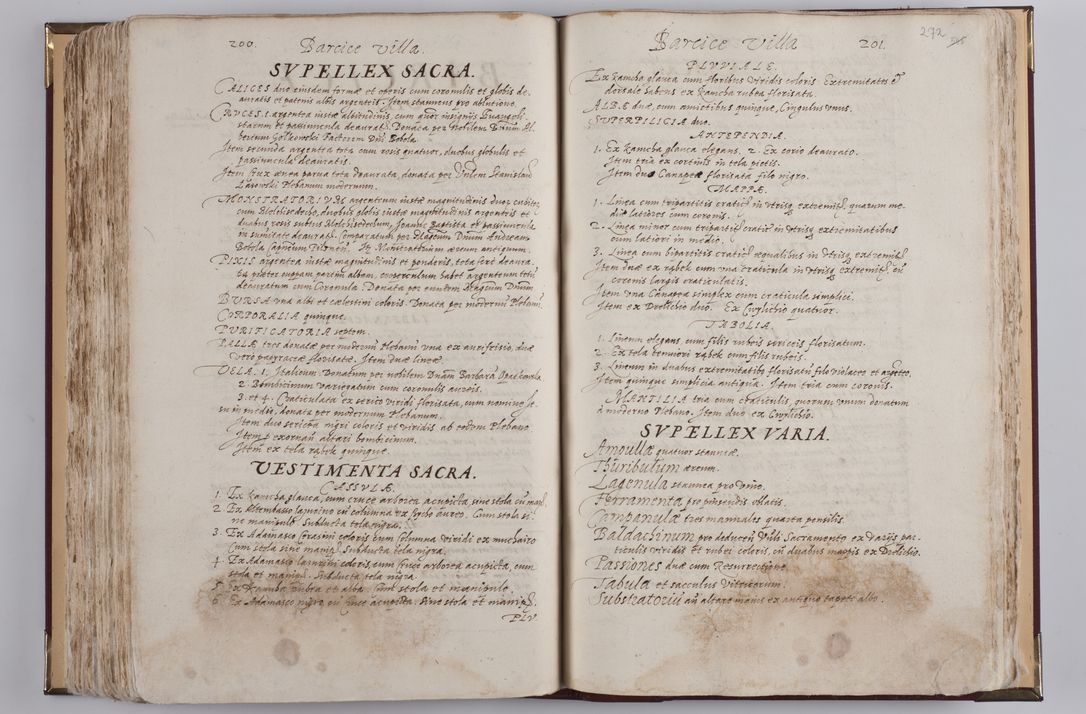 200. Barcice villa.
SVPELLEX SACRA.
CALICES duo eiusdem formæ et operis cum coronulis et globis de-
auratis et patenis albis argenteis. Item stanneus pro ablutione.
CRVCES. 1 argentea iustæ altitudinis, cum quor insignijs Euangeli-
starum et passiuncula deaurat. Donata per Nobilem
bertum Gołkowski Factorem Dni Bobola.
Item secunda argentea tota cum rosis quatuor, duobus globulis et
passiuncula deauratis.
Item Crux ænea parua tota deaurata, donata per Vnlem Stanislaum
Plebanum modernum.
MONSTRATORIVM argenteum iustæ magnitudinis duor cubitor
cum Melchisedecho, duobus globis iustæ magnitudinis argenteis et
duabus rosis subtus Melchisedechum, Joannis Baptista et passiuncula
in sumitate deaurat. Comparatum per Magcum Dnum Andream
Bobola It Monstratorium æreum antiquum.
PIXIS argentea iustæ magnitudinis et ponderis, tota fere deaura-
ta præter cuppam partim albam, cooperculum habet argenteum totum
deauratum cum Coronula. Donata per eundem Magcum Dnum
BVRSA vna albi et cælestini coloris. Donata per modernum Plebanum.
CORPORALIA quinque.
PVRIFICATORIA septem.
PALLÆ tres donatæ per modernum Plebanum vna ex aurifrisio, duæ
vero florisatæ. Item duæ lineæ.
VELA. 1. Italicum. Donatum per nobilem Dnam Barbara
2. Bombicinum variegatum cum coronulis aureis.
3. et 4. Craticulata ex serico viridi florisata, cum nomine Je-
su in medio, donata per modernum Plebanum.
Item duo sericea nigri coloris et viridis ab eodem Plebano.
Item exornan altari bombicinum.
Item ex tela rąbek quinque.
VESTIMENTA SACRA.
CASSVLÆ.
1. Ex kamcha glauca, cum cruce arborea acupicta, sine stola cu man.
2. Ex Altembasso cu columna ex aureo. Cum stola si-
ne manipulo. Subducta tela nigra.
3. Ex Adamasco coloris cum Columna viridi ex muchairo
Cum stola sine manip. Subducta tela nigra.
4. Ex Adamasco coloris, cum cruce arborea acupicta, cum
stola et manip. Subducta tela nigra.
5. Ex Kamha rubra et alba. Cum stola et manipulo.
6. Ex Adamasco nigro cu Cruce acupicta. Sine stola et manip.
PLV.
Barcice villa 201.
292
PLVVIALE.
Ex kamcha glauca cum floribus viridis coloris. Extremitates et
dorsale habens ex kamcha rubea florisata.
ALBÆ duæ, cum amictibus quinque, Cingulus vnus.
SVPERPILICIA duo.
ANTEPENDIA.
1. Ex kamcha glauca elegans. 2. Ex corio deaurato.
Item tria ex cortinis in tela pictis.
Item duo Canapea florisata filo nigro.
MAPPÆ.
1. Linea cum tripartitis cratic in vtrisq extremit, quarum me-
diæ latiores cum coronis.
2. Linea minor cum tripartit cratic in vtrisq extremitatibus
cum latiori in medio.
3. Linea cum bipartitis cratic æqualibus in vtrisq extremit
Item duæ ex rąbek cum vna craticula in vtrisq extremit, cu
coronis largis craticulatis.
Item vna Canapea simplex cum craticula simplici.
Item ex Drelichio duo. Ex Cwylichio quatuor.
TABOLIA.
1. Lineum elegans cum filis rubeis sericeis florisatum.
2. Ex tela tenuiori rąbek cum filis rubeis.
3. Lineum in duabus extremitatibus florisatu filo violaceo et argenteo.
Item quinque simplicia antiqua. Item tria cum coronis.
MANTILIA tria cum craticulis, quorum vnum donatum
a moderno Plebano. Item duo ex Cwylichio.
SVPELLEX VARIA.
Ampullæ quatuor stanneæ.
Thuribulum æreum.
Lagenula stannea pro vino.
Ferramenta pro pinsendis oblatis.
Campanulæ tres manuales quarta pensilis.
Baldachinum pro deducen Vnli Sacramento ex varijs par-
ticulis viridis et rubei coloris, cu duabus mappis ex Drelichio.
Passiones duæ cum Resurrectione.
Tabula et sacculus Vitricorum.
Substratoriu an altare maius ex antiquo tapete albo.